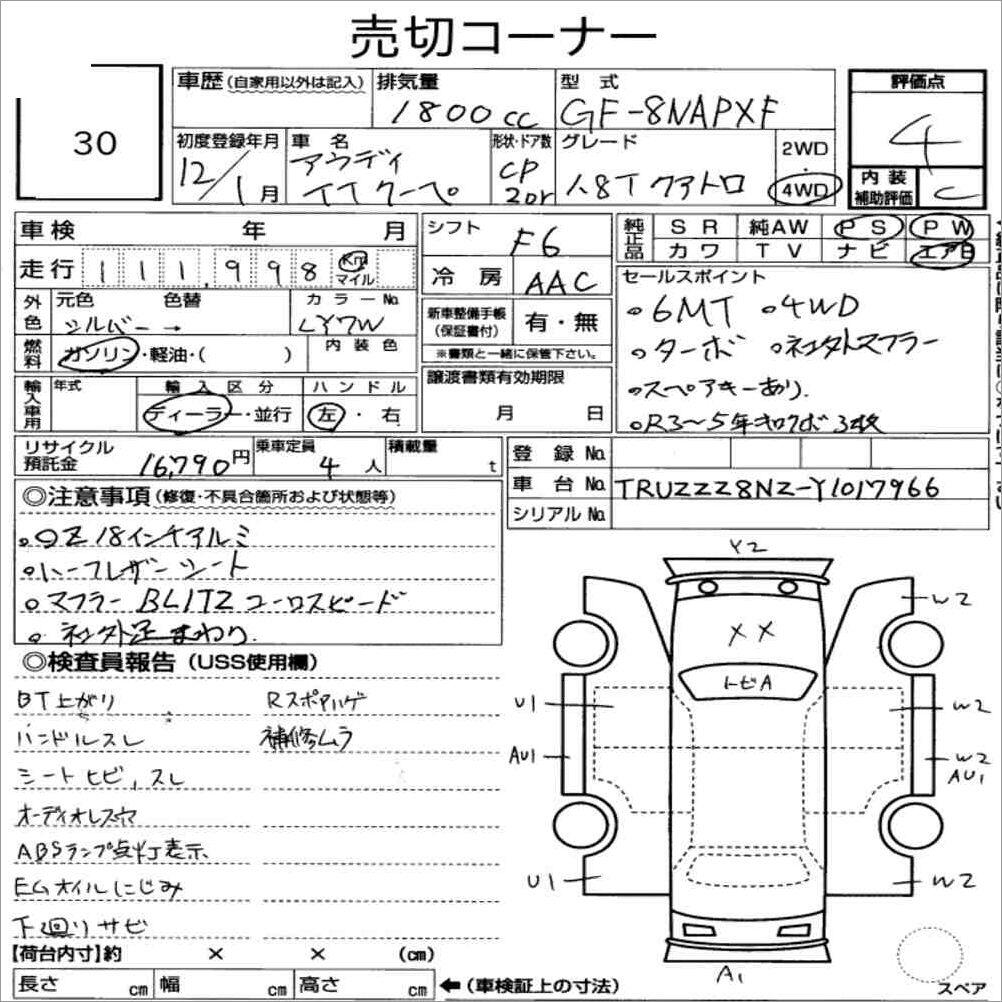 売切コーナー
30
車歴(自家用以外は記入) 排気量 1800cc 型式 GF-8NAPXF 評価点 4
初度登録年月 12/1月 車名 アウディ TTクーペ 形状・ドア数 CP 2Dr グレード 1.8T クアトロ 2WD・4WD 内装補助評価 C
車検 年 月 シフト F6 純正品 SR 純AW PS PW
カワ TV ナビ エアB
走行 111,998 Km マイル 冷房 AAC
外色 元色 シルバー→ 色替 カラーNo. LY7W
新車整備手帳(保証書付) 有・無
※書類と一緒に保管下さい。
燃料 ガソリン・軽油・( ) 内装色
輸入車用 年式 輸入区分 ディーラー・並行 ハンドル 左・右
譲渡書類有効期限 月 日
セールスポイント
。6MT 。4WD
。ターボ 。ネン外スフラー
。スペアキーあり.
。R3~5年キロクボ3枚
リサイクル預託金 16,790円 乗車定員 4人 積載量 t
登録No.
車台No. TRUZZZ8NZ-Y1017966
シリアルNo.
◎注意事項(修復・不具合箇所および状態等)
。OZ 18インチアルミ
。ハーフレザーシート
。マフラー BLITZ ユーロスピード
。ネン外足まわり.
◎検査員報告(USS使用欄)
BT上がり Rスポアハゲ
ハンドルスレ 補修ムラ
シートヒビ,スレ
オーディオレス穴
ABSランプ点灯表示
EGオイルにじみ
下廻りサビ
Y2
W2
XX
トビA
U1
W2
AU1
W2
AU1
U1
W2
A1
スペア
【荷台内寸】約 × × (cm)
長さ cm 幅 cm 高さ cm ←(車検証上の寸法)